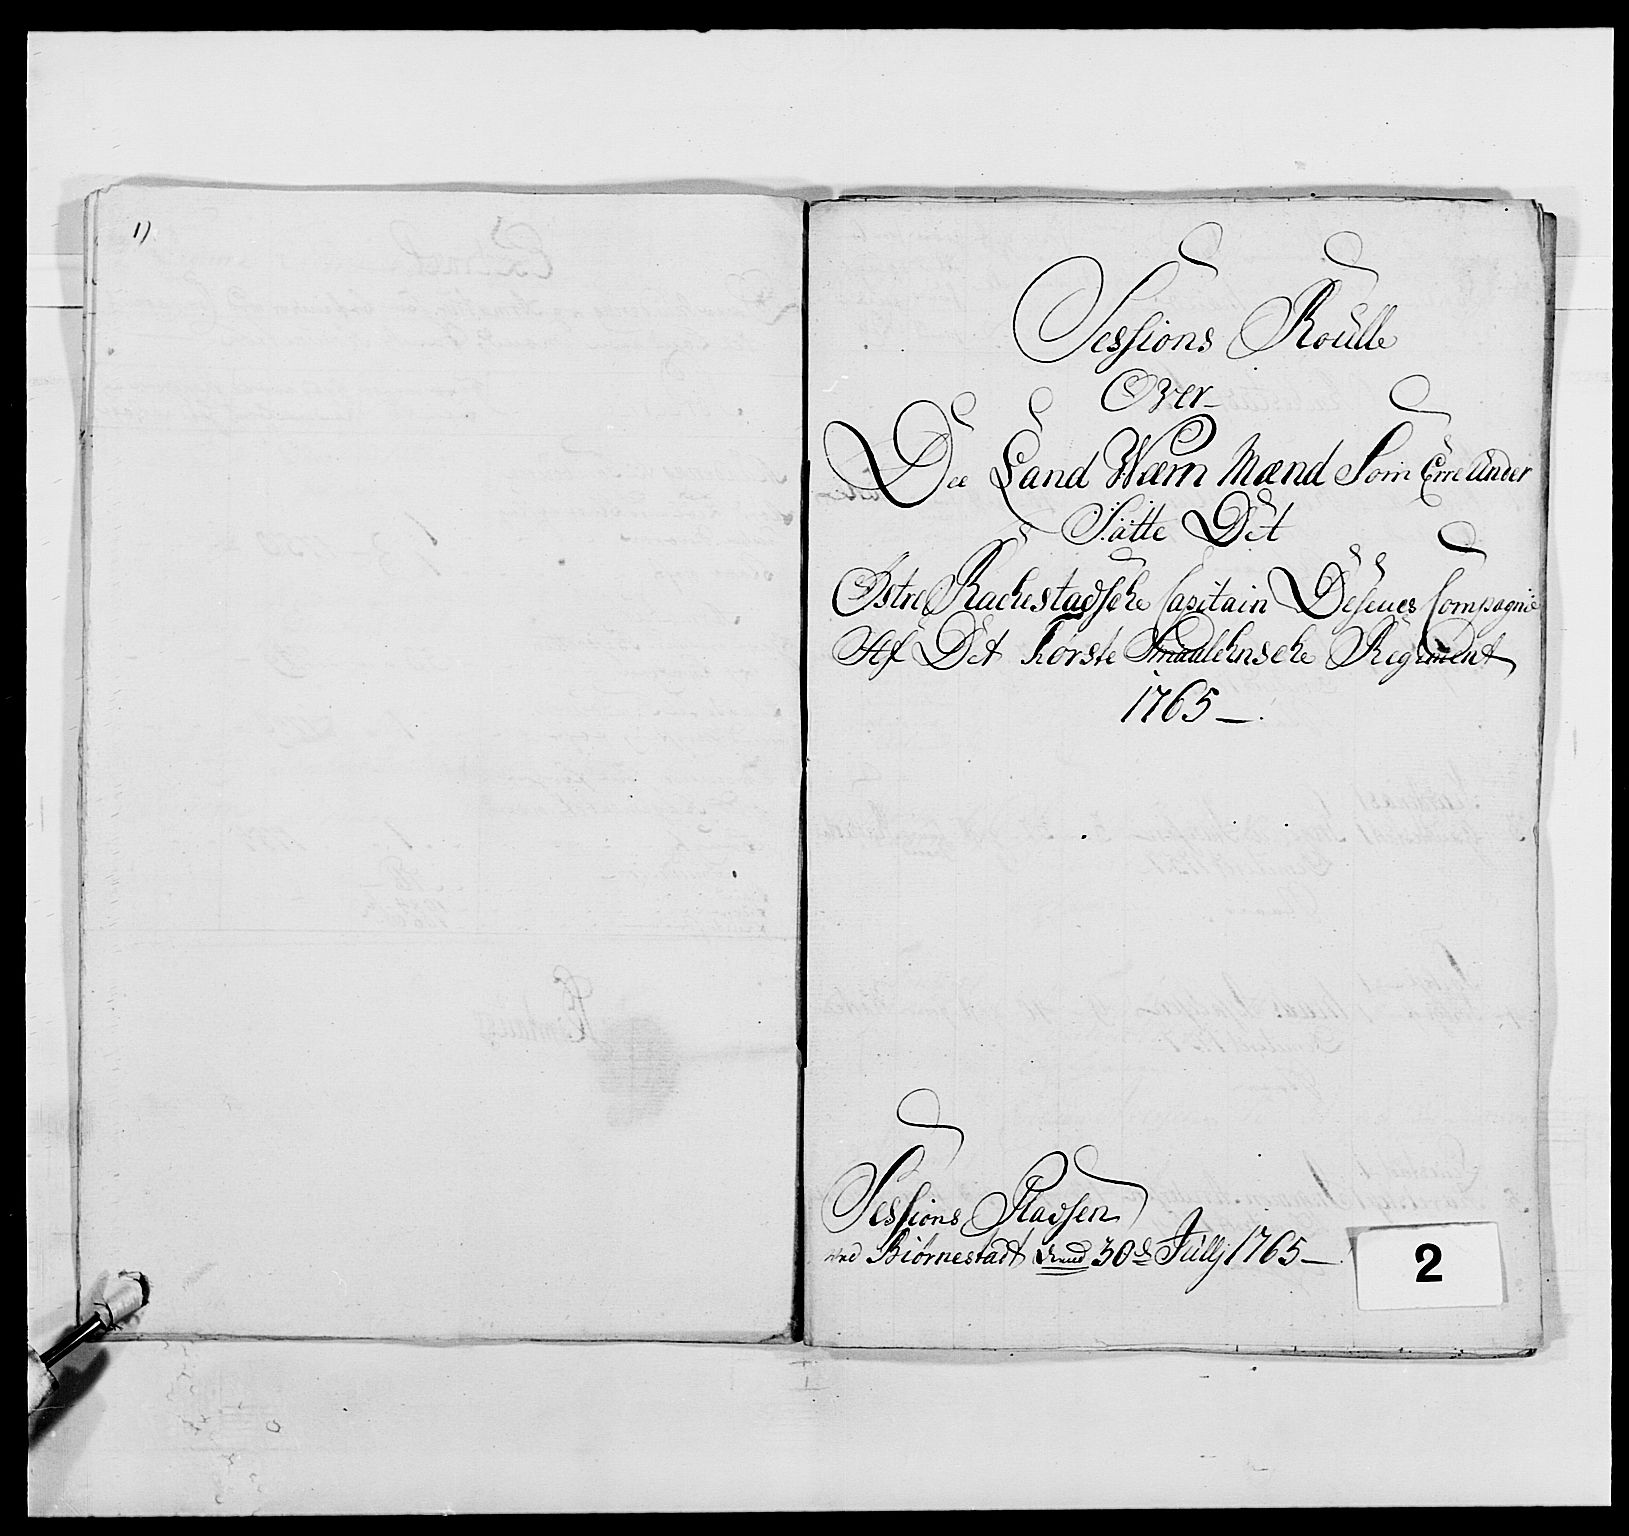 1)
Sessions Roulle
Over
De Land Wærn Mænd Som Erre Under
Satte Det
Østre Rachestadsche Capitain Deseues Compagnie
Af Det Første Smaalehnsche Regiment
1765
Sessions Pladsen
ved Biørnestadt dend 30de Julij 1765
2